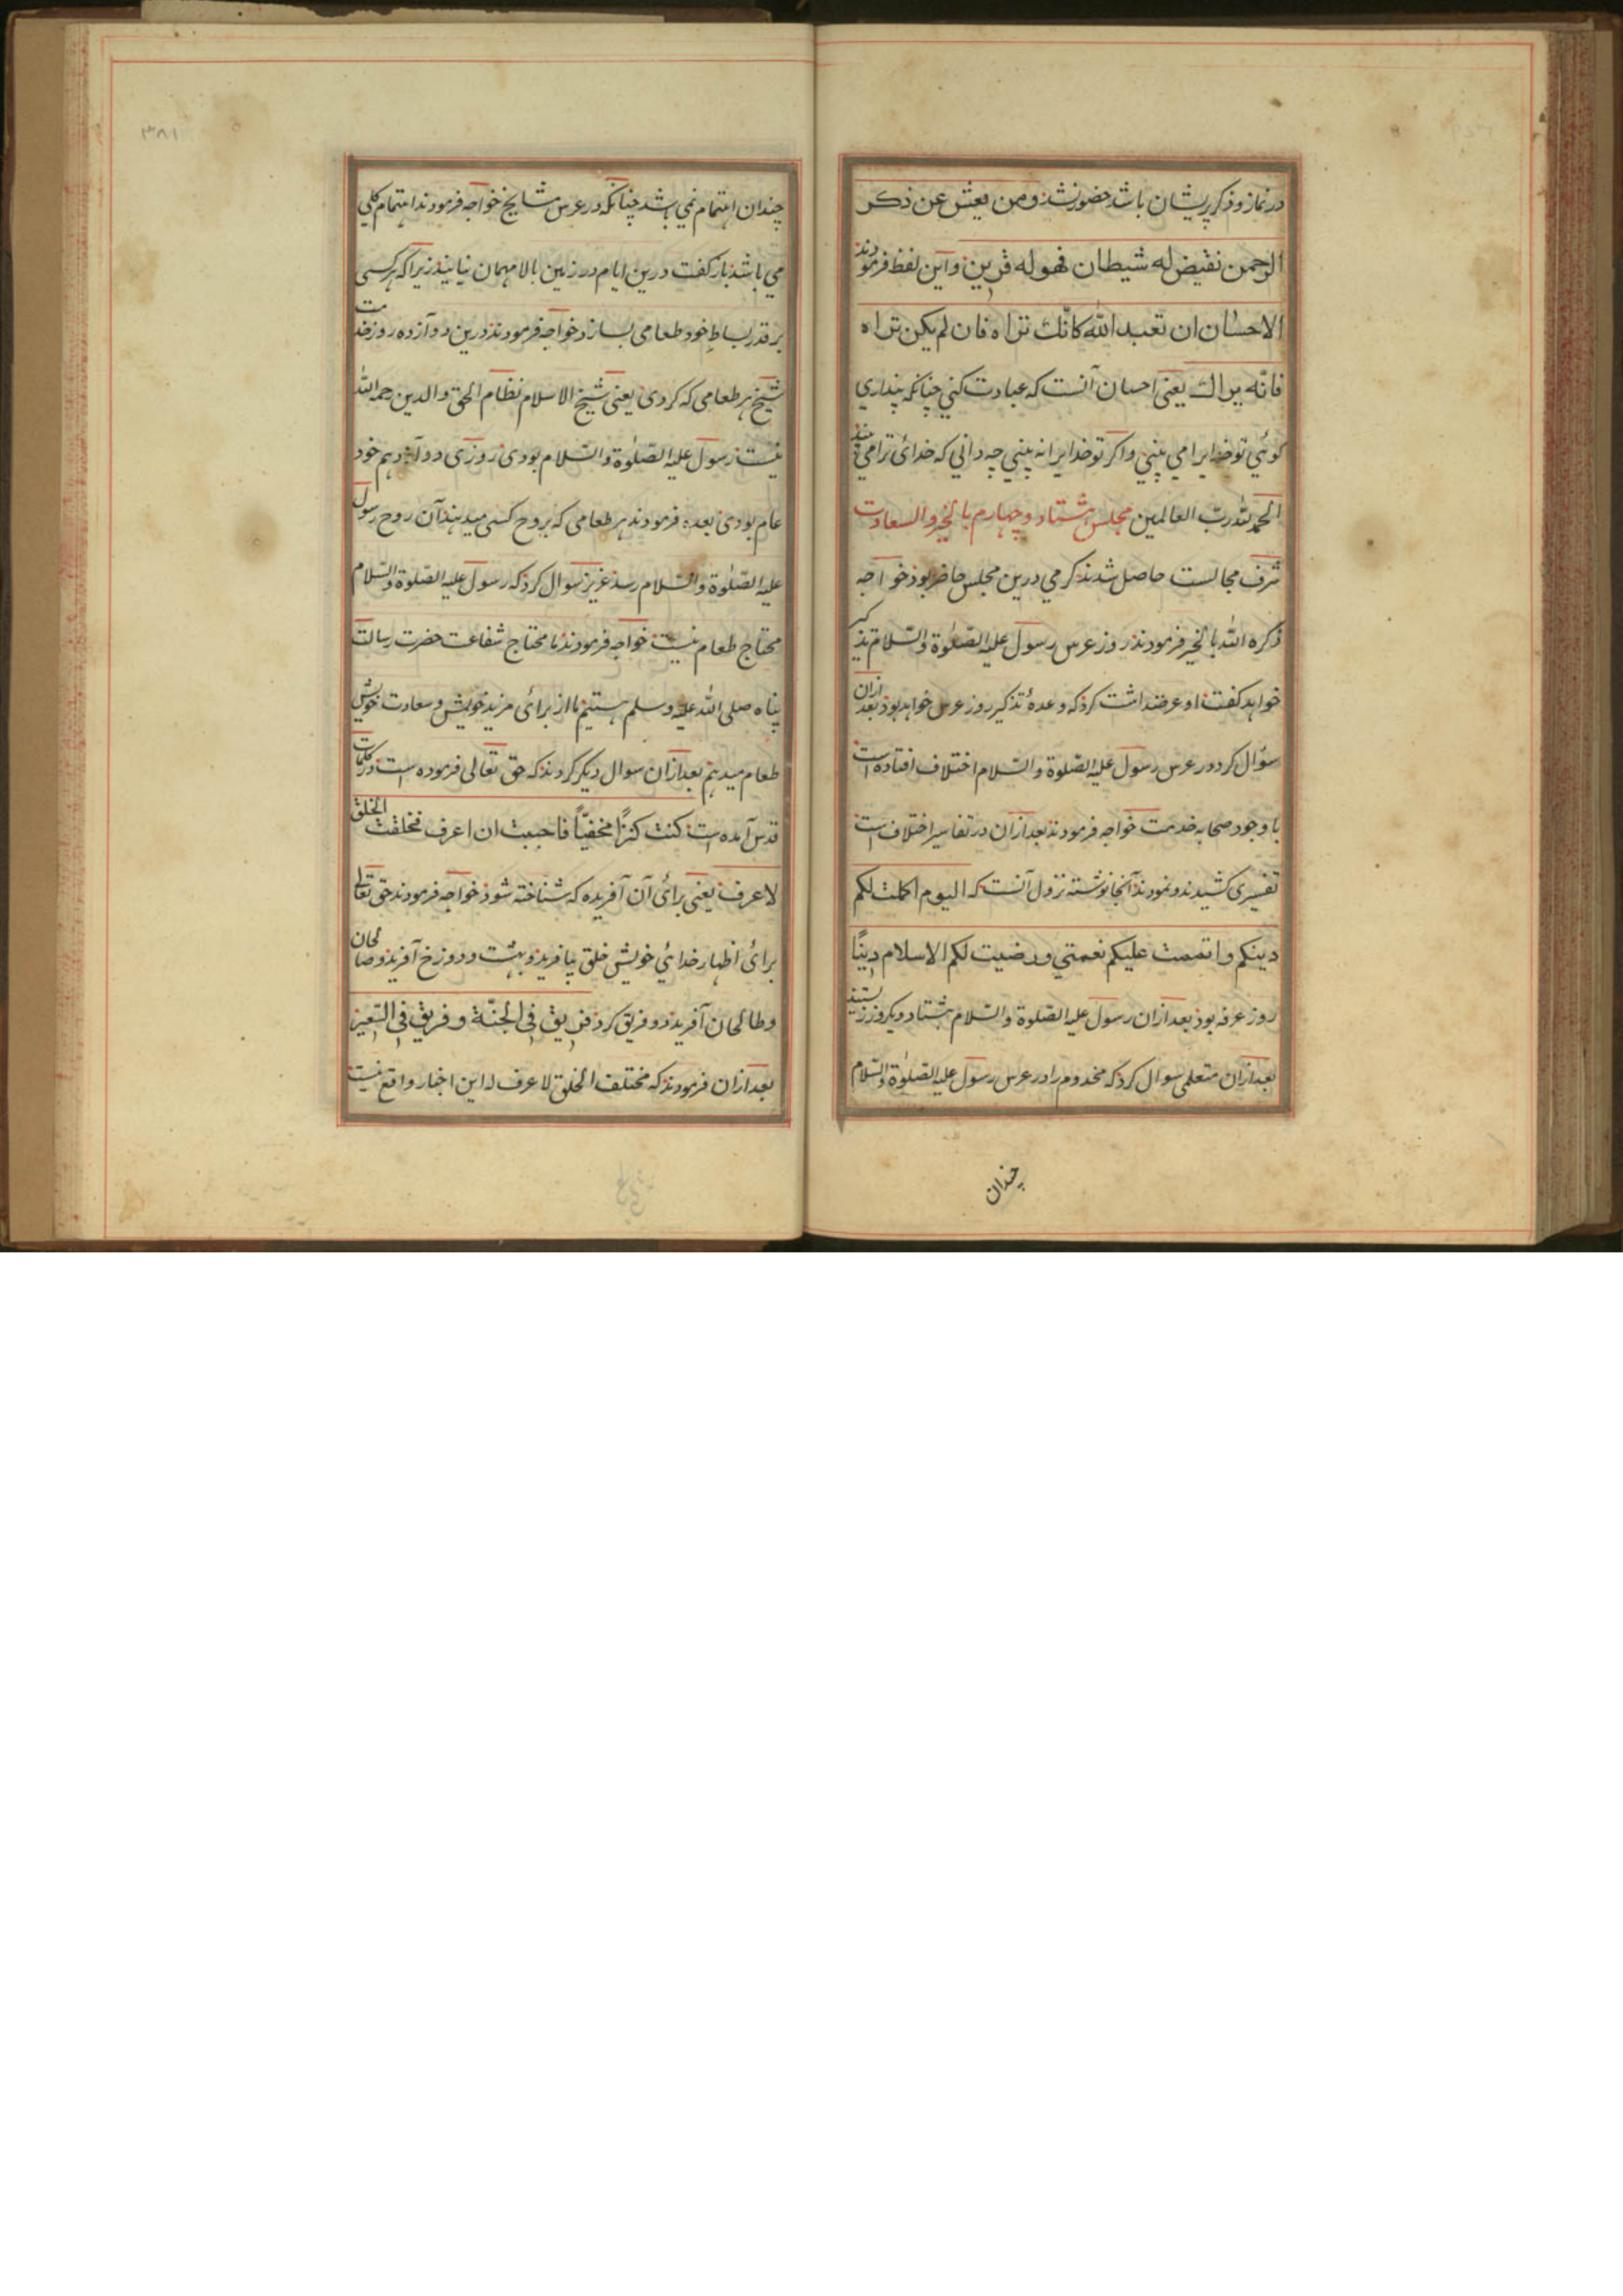 در نماز و ذکر پریشان باشد حضور نشد ومن یعش عن ذکر
الرحمن نقیض له شیطان فهو له قرین و این لفظ فرمودند
الاحسان ان تعبد الله کانّک تراه فان لم یکن تراه
فانّه یراک یعنی احسان آنست که عبادت کنی چنانکه پنداری
کوئی تو خدایرا می بینی و اکر تو خدایرا نه بینی چه دانی که خدائی ترا می بیند
الحمد لله ربّ العالمین مجلس هشتاد و چهارم بالخیر و السعادت
شرف مجالست حاصل شد ند کرمی درین مجلس حاضر بود خواجه
ذکره الله بالخیر فرمودند روز عرس رسول علیه الصّلوة والسّلام تذکیر
خواهد کفت او عرضداشت کرد که وعدهٔ تذکیر روز عرس خواهد بود بعد ازان
سؤال کرد در عرس رسول علیه الصّلوة والسّلام اختلاف افتاده است
با وجود صحابه خدمت خواجه فرمودند بعد ازان در تفاسیر اختلاف است
تفسیری کشیدند و نمودند آنجا نوشته نزول آنست که الیوم اکملت لکم
دینکم و اتممت علیکم نعمتی ورضیت لکم الاسلام دینًا
روز عرفه بود بعد ازان رسول علیه الصّلوة والسّلام هشتاد و یکروز زیستند
بعد ازان متعلمی سوال کرد که مخدوم را در عرس رسول علیه الصّلوة والسّلام
چندان
۳۸۱
چندان اهتمام نمی باشد چنانکه در عرس مشایخ خواجه فرمودند اهتمام کلی
می باشد باز کفت درین ایام در زمین بالا مهمان نیایند زیرا که هر کسی
بر قدر بساطِ خود طعامی بسازد خواجه فرمودند درین دوازده روز خدمت
شیخ هر طعامی که کردی یعنی شیخ الاسلام نظام الحق والدین رحمه الله
نیست رسول علیه الصّلوة والسّلام بودی روزی دوازدهم خود
عام بودی بعده فرمودند هر طعامی که بروح کسی میدهند آن روح رسول
علیه الصّلوة والسّلام رسد عزیز سوال کرد که رسول علیه الصّلوة والسّلام
محتاج طعام نیست خواجه فرمودند ما محتاج شفاعت حضرت رسالت
پناه صلی الله علیه وسلم هستیم ما از برائی مزید خویش و سعادت خویش
طعام میدهیم بعد ازان سوال دیکر کردند که حق تعالی فرموده است در کلمات
قدس آمده است کنت کنزًا مخفیّاً فاحببت ان اعرف فخلقت الخلق
لاعرف یعنی برائی آن آفریده که شناخته شود خواجه فرمودند حق تعالی
برائی اظهار خدائی خویش خلق بیافرید و بهشت و دوزخ آفرید و صالحان
و طالحان آفرید دو فریق کرد فریق فی الجنّة و فریق فی السّعیر
بعد ازان فرمودند که مختلف الخلق لاعرف له این اخبار واقع نیست